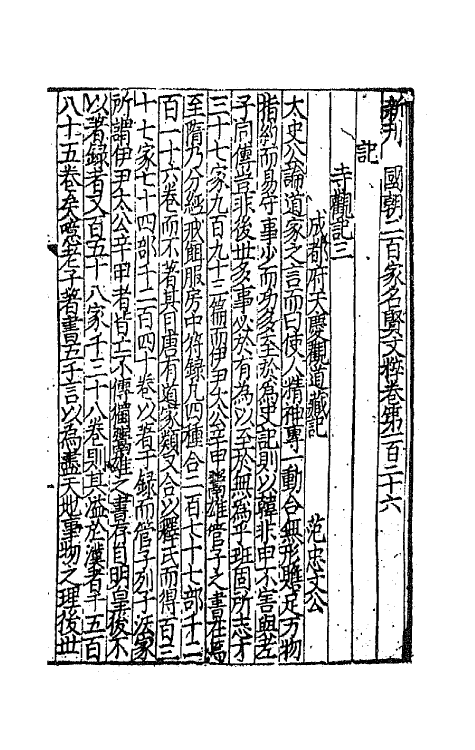 新刊 國朝二百家名賢文粹卷第一百二十六
記
寺觀記三
成都府天慶觀道藏記 范忠文公
太史公論道家之言而曰使人精神專一動合無形贍足万物
指約而易守事少而功多至於為史記則以韓非申不害與老
子同傳豈非後世多事必於有為以至於無為乎班固所志才
三十七家九百九十三篇而伊尹太公辛甲鬻雄管子之書在焉
至隋乃分經戒餌服房中符録凡四種合二百七十七部千二
百一十六卷而不著其目唐有道家類又合以釋氏而得百三
十七家七十四部千二百四十卷以著于録而管子列于法家
所謂伊尹太公辛甲者皆亡不傳獨鬻雄之書存自明皇後不
以著録者又百五十八家千三十八卷則其溢於漢者千五百
八十五卷矣噫老子著書五千言以為盡天地事物之理後世